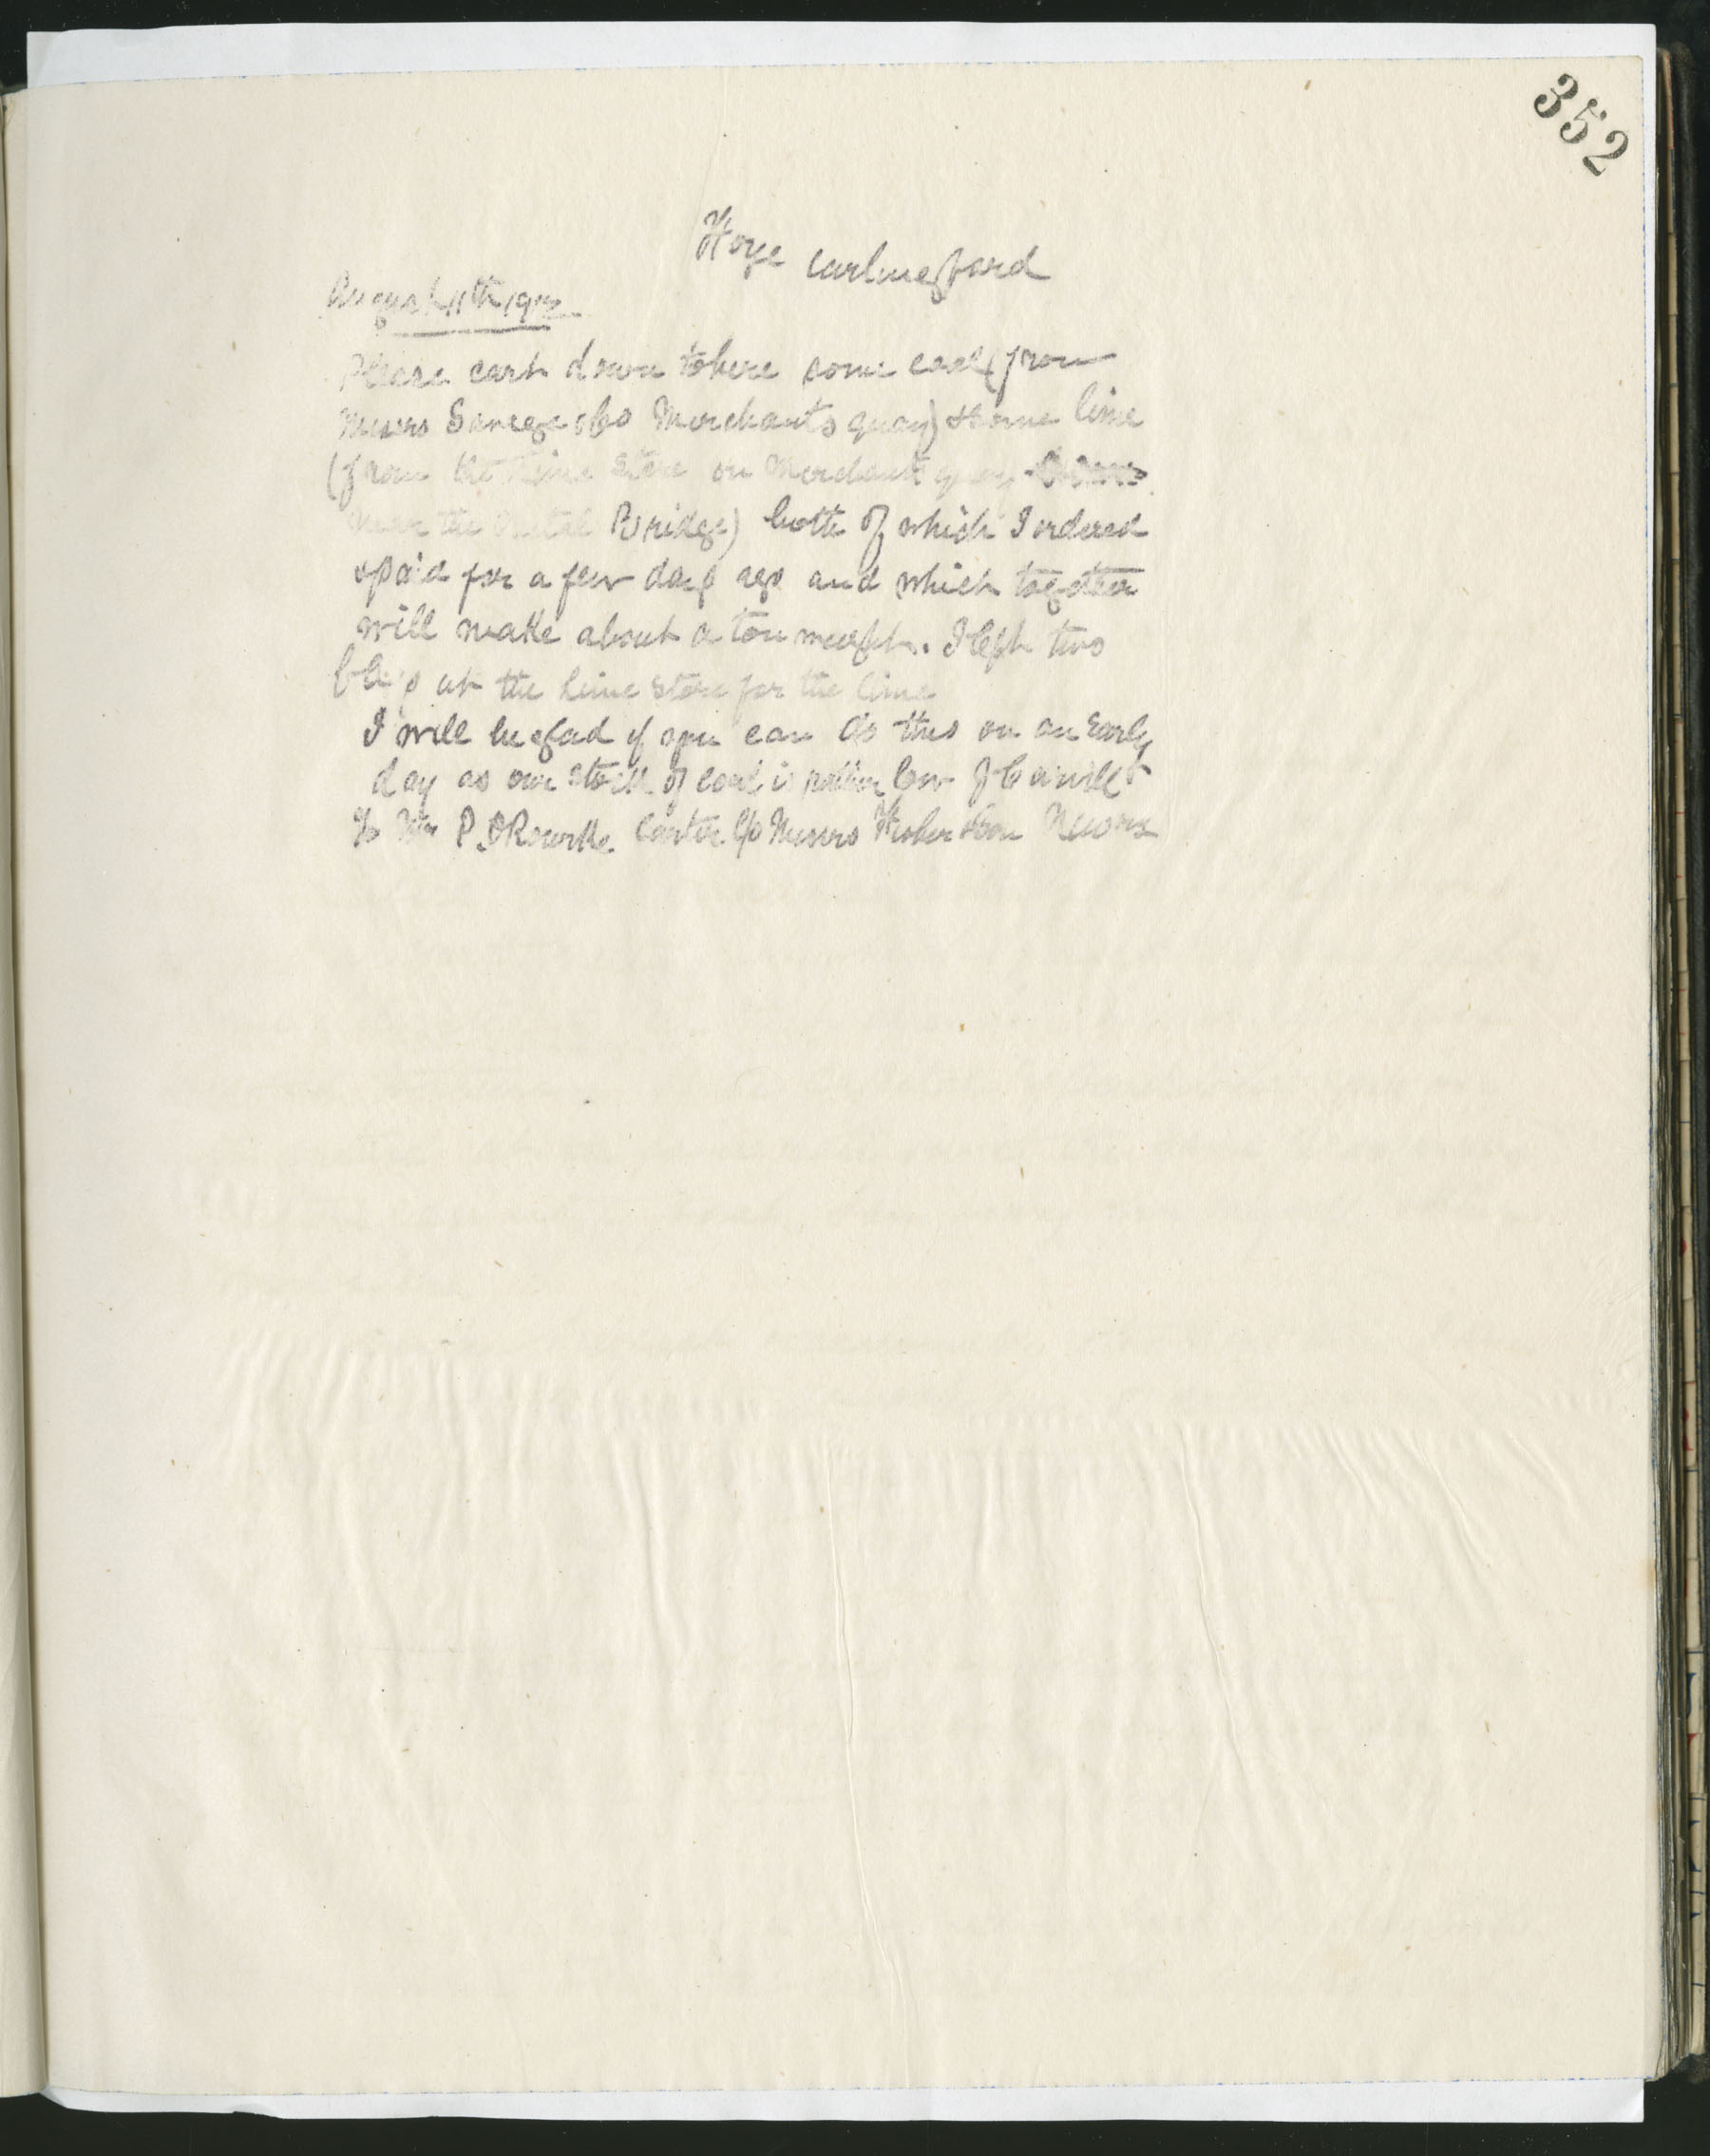 352
Carlingford
August 11th 191
Please cart down to here some coal (from
Messrs & Co Merchants quay) & some lime
(from the Lime Store on Merchants quay
near the Metal Bridge) both of which I ordered
& paid for a few days ago and which together
will make about a ton weight. I left two
at the Lime Store for the lime
I will be glad if you can do this on an Early
day as our stock of coal is rather low
To Mr P. O'Rourke Carter C/o Messrs Fisher & Son Newry